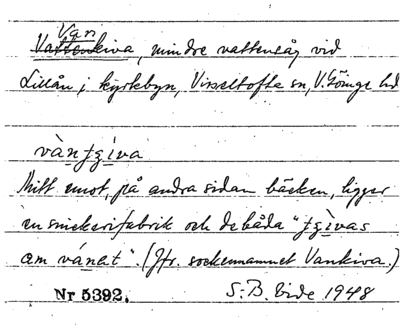 Van
Vattenkiva, mindre vattensåg vid
Lillån i kyrkbyn, Visseltofta sn, V. Göinge hd
vàntʒiva
Mitt emot, på andra sidan bäcken, ligger
en snickerifabrik och de båda "tʒìvas
om vánet". (Jfr. sockennamnet Vankiva.)
Nr 5392. S. B. Vide 1948